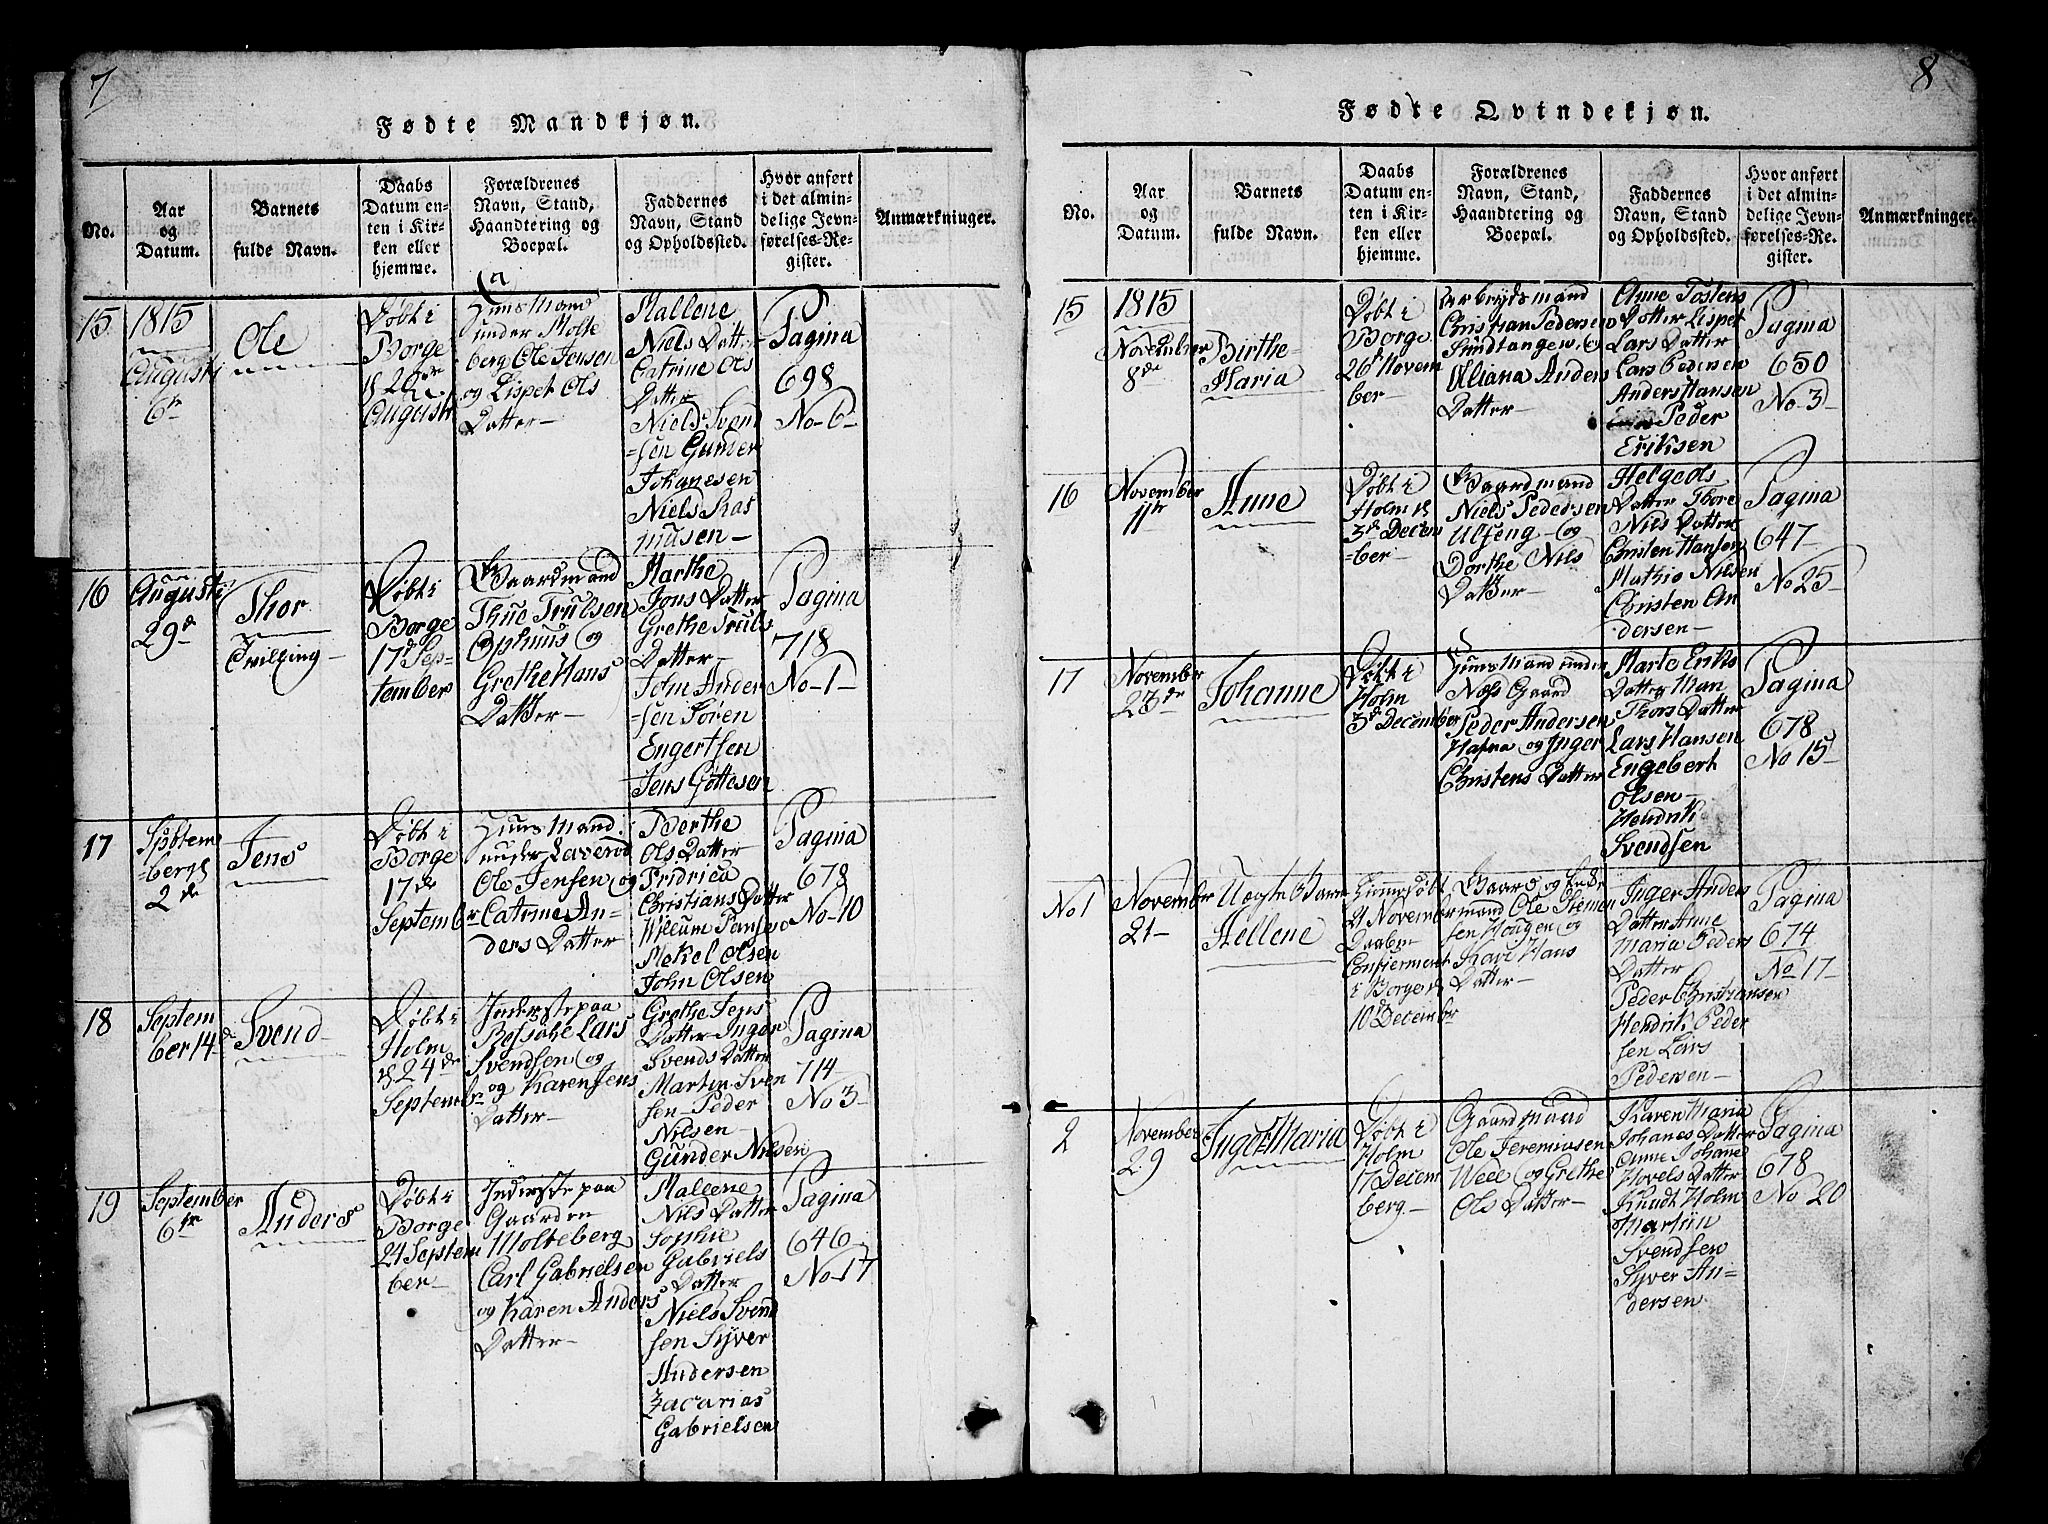 7
Fødte Mandkjøn.
No.
Aar
og
Datum.
Barnets
fulde Navn.
Daabs
Datum en-
ten i Kir-
ken eller
hjemme.
Forældrenes
Navn, Stand,
Haandtering og
Boepæl.
Faddernes
Navn, Stand
og Opholdssted.
Hvor anført
i det almin-
delige Jevn-
førelses-Re-
gister.
Anmærkninger.
15
1815
Augusti
6te
Ole
Døbt i
Borge
20de
August
Huusmand
under Molte
berg Ole Jensen
og Lispet Ols
Datter
Mallene
Niels Datter
Catrine Ols
Datter
Niels Svend
-sen Gunder
Johanesen
Niels Ras
musen
Pagina
698
No 6
16
Augusti
29de
Thor
Tvilling
Døbt i
Borge
17de Sep-
tember
Gaardmand
Thue Trulsen
Ophuus og
Grethe Hans
Datter
Marthe
Jons Datter
Grethe Truls
Datter
John Ander
-sen Søren
Engertsen
Jens Gøttesen
Pagina
718
No 1
17
2de
Jens
Døbt i
Borge
17de
September
Huusmand
under Laverød
Ole Jensen og
Catrine An-
ders Datter
Berthe
Ols Datter
Fridrica
Christians Datter
Willum
Mekel Olsen
John Olsen
Pagina
678
No 10
18
Septem
ber 14de
Svend
Døbt i
Holm
24de
September
Inderste paa
Lars
Svendsen og
og Karen Jens
Datter
Grethe Jens
Datter Inger
Svends Datter
Martin Sven
sen Peder
Nilsen
Gunder Nilsen
Pagina
714
No 3
19
September
6te
Anders
Døbt i
Borge
24 Septem
ber
Inderste paa
Gaarden
Molteberg
Carl Gabrielsen
og Karen Anders
Datter
Mallene
Nils Datter
Sophie
Gabriels
Datter
Niels Svend
sen Syver
Andersen
Zacarias
Gabrielsen
Pagina
646
No 17
8
Fødte Qvindekjøn.
No.
Aar
og
Datum.
Barnets
fulde Navn.
Daabs
Datum en-
ten i Kir-
ken eller
hjemme.
Forældrenes
Navn, Stand,
Haandtering og
Boepæl.
Faddernes
Navn, Stand
og Opholdssted.
Hvor anført
i det almin-
delige Jevn-
førelses-Re-
gister.
Anmærkninger.
15
1815
November
8de
Birthe
Maria
Døbt i
Borge
26 Novem
ber
Arbeydsmand
Christian Pedersen
Sundtangen, og
Uliana Anders
Datter
Anne Tostens
Datter Lispet
Lars Datter
Lars Pedersen
Anders Hansen
Peder
Eriksen
Pagina
650
No 3
16
November
11te
Anne
Døbt i
Holm
3de Decem
-ber
Gaardmand
Niels Pedersen
Ulfeng og
Dorthe Nils
Datter
Helge Ols
Datter Thore
Nils Datter
Christen Hansen
Mathis Nilsen
Christen An
dersen
Pagina
647
No 25
17
November
23de
Johanne
Døbt i
Holm
3de December
Huusmand under
Næs Gaard
Peder Andersen
Hafna og Inger
Christens Datter
Marte Eriks
Datter
Thors Datter
Lars Hansen
Engebert
Olsen
Hendrik
Svendsen
Pagina
678
No 15
No 1
November
21
Uegte Barn
Hellene
Hiemedøbt
21 November
Daaben
Confierment
i Borge
10 December
Gaard og
mand Ole
sen Hougen og
Kari Hans
Datter
Inger Anders
Datter Anne
Maria Peders
Datter
Peder Christiansen
Hendrik Peder
sen Lars
Pedersen
Pagina
674
No 17
2
November
29
Ingot Maria
Døbt i
Holm
17 Decem
berg
Gaardmand
Ole Jeremiasen
Wede og Grethe
Ols Datter
Karen Maria
Johanes Datter
Anne Johane
Hovels Datter
Knudt Holm
Martin
Svendsen
Syver An-
dersen
Pagina
678
No 20